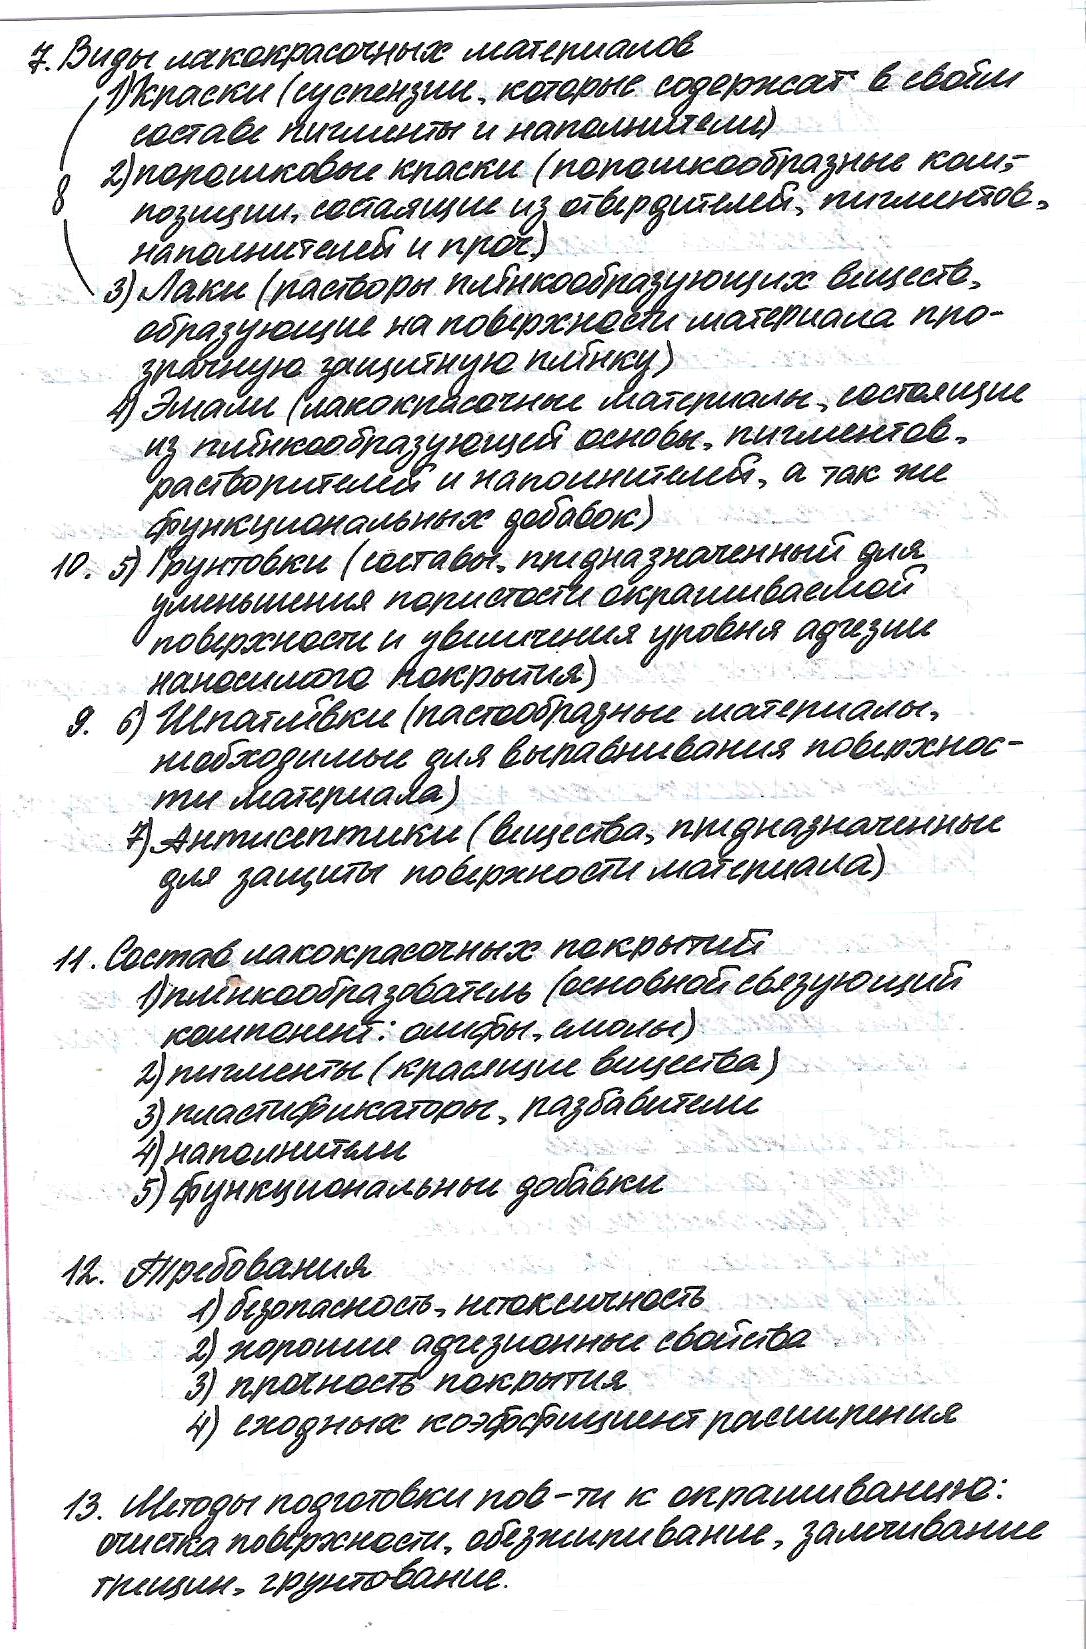 7. Виды лакокрасочных материалов
1) Краски (суспензии, которые содержат в своём
составе пигменты и наполнители)
8
2) порошковые краски (порошкообразные ком-
позиции, состоящие из отвердителей, пигментов,
наполнителей и проч.)
3) Лаки (растворы плёнкообразующих веществ,
образующие на поверхности материала про-
зрачную защитную плёнку)
4) Эмали (лакокрасочные материалы, состоящие
из плёнкообразующей основы, пигментов,
растворителей и наполнителей, а так же
функциональных добавок)
10. 5) Грунтовки (составы, предназначенный для
уменьшения пористости окрашиваемой
поверхности и увеличения уровня адгезии
наносимого покрытия)
9. 6) Шпатлёвки (пастообразные материалы,
необходимые для выравнивания поверхнос-
ти материала)
7) Антисептики (вещества, предназначенные
для защиты поверхности материала)
11. Состав лакокрасочных покрытий
1) плёнкообразователь (основной связующий
компонент: олифы, смолы)
2) пигменты (красящие вещества)
3) пластификаторы, разбавители
4) наполнители
5) функциональные добавки
12. Требования
1) безопасность, нетоксичность
2) хорошие адгезионные свойства
3) прочность покрытия
4) сходных коэффициент расширения
13. Методы подготовки пов-ти к окрашиванию:
очистка поверхности, обезжиривание, замчивание
трещин, грунтование.